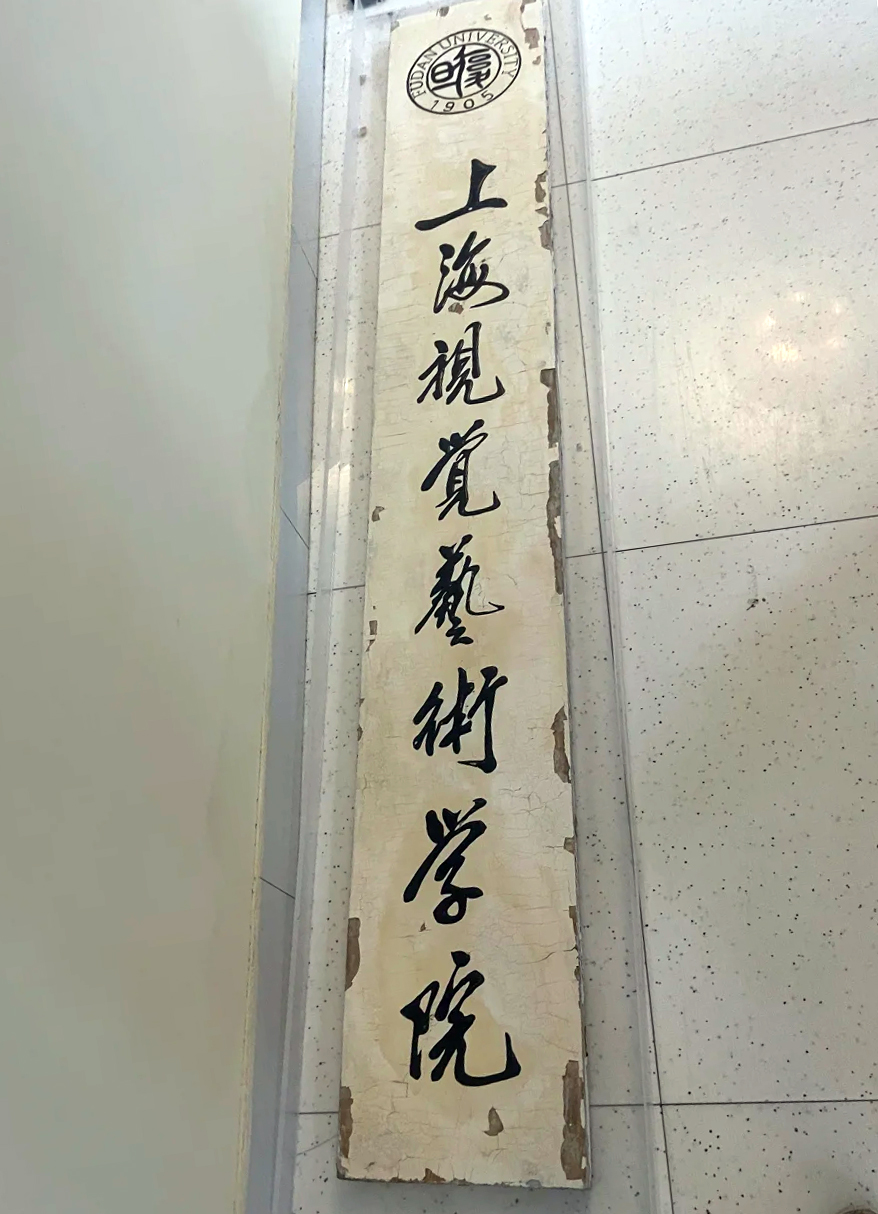 FUDAN UNIVERSITY
復旦
1905
上海視覺藝術学院